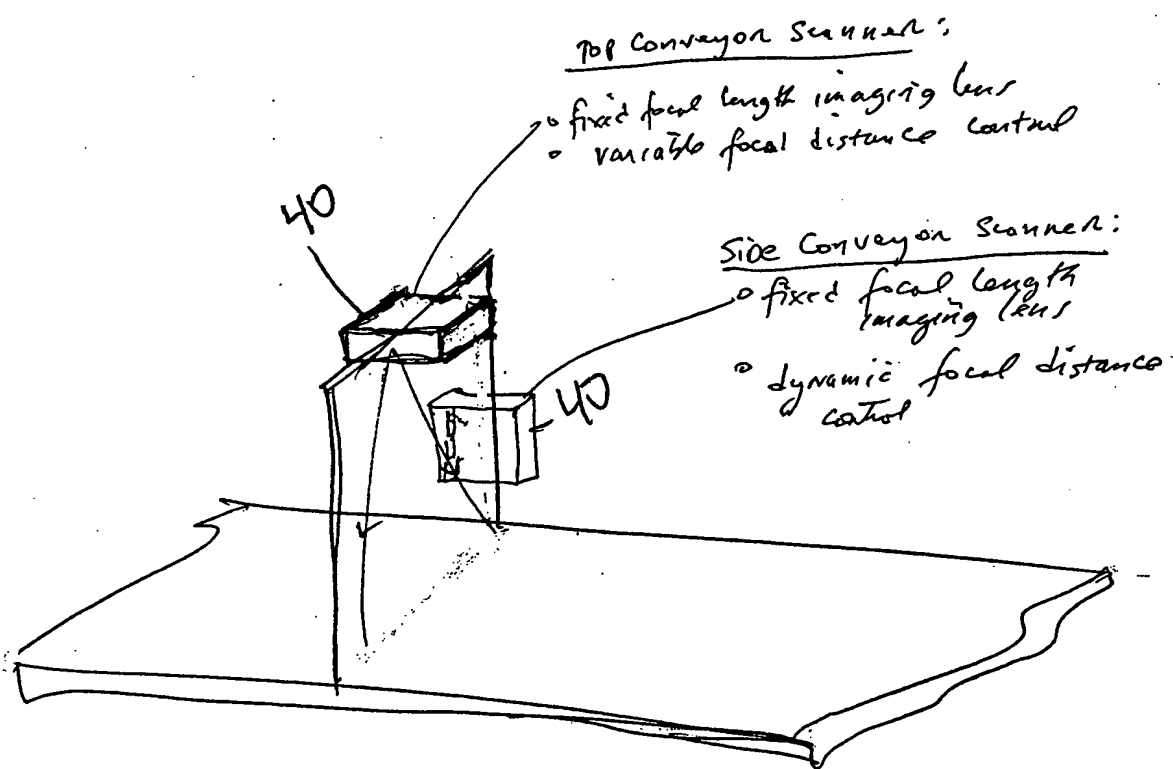 Top Conveyor Scanner:
• fixed focal length imaging lens
• variable focal distance control
40
Side Conveyor Scanner:
• fixed focal length
imaging lens
• dynamic focal distance
control
40